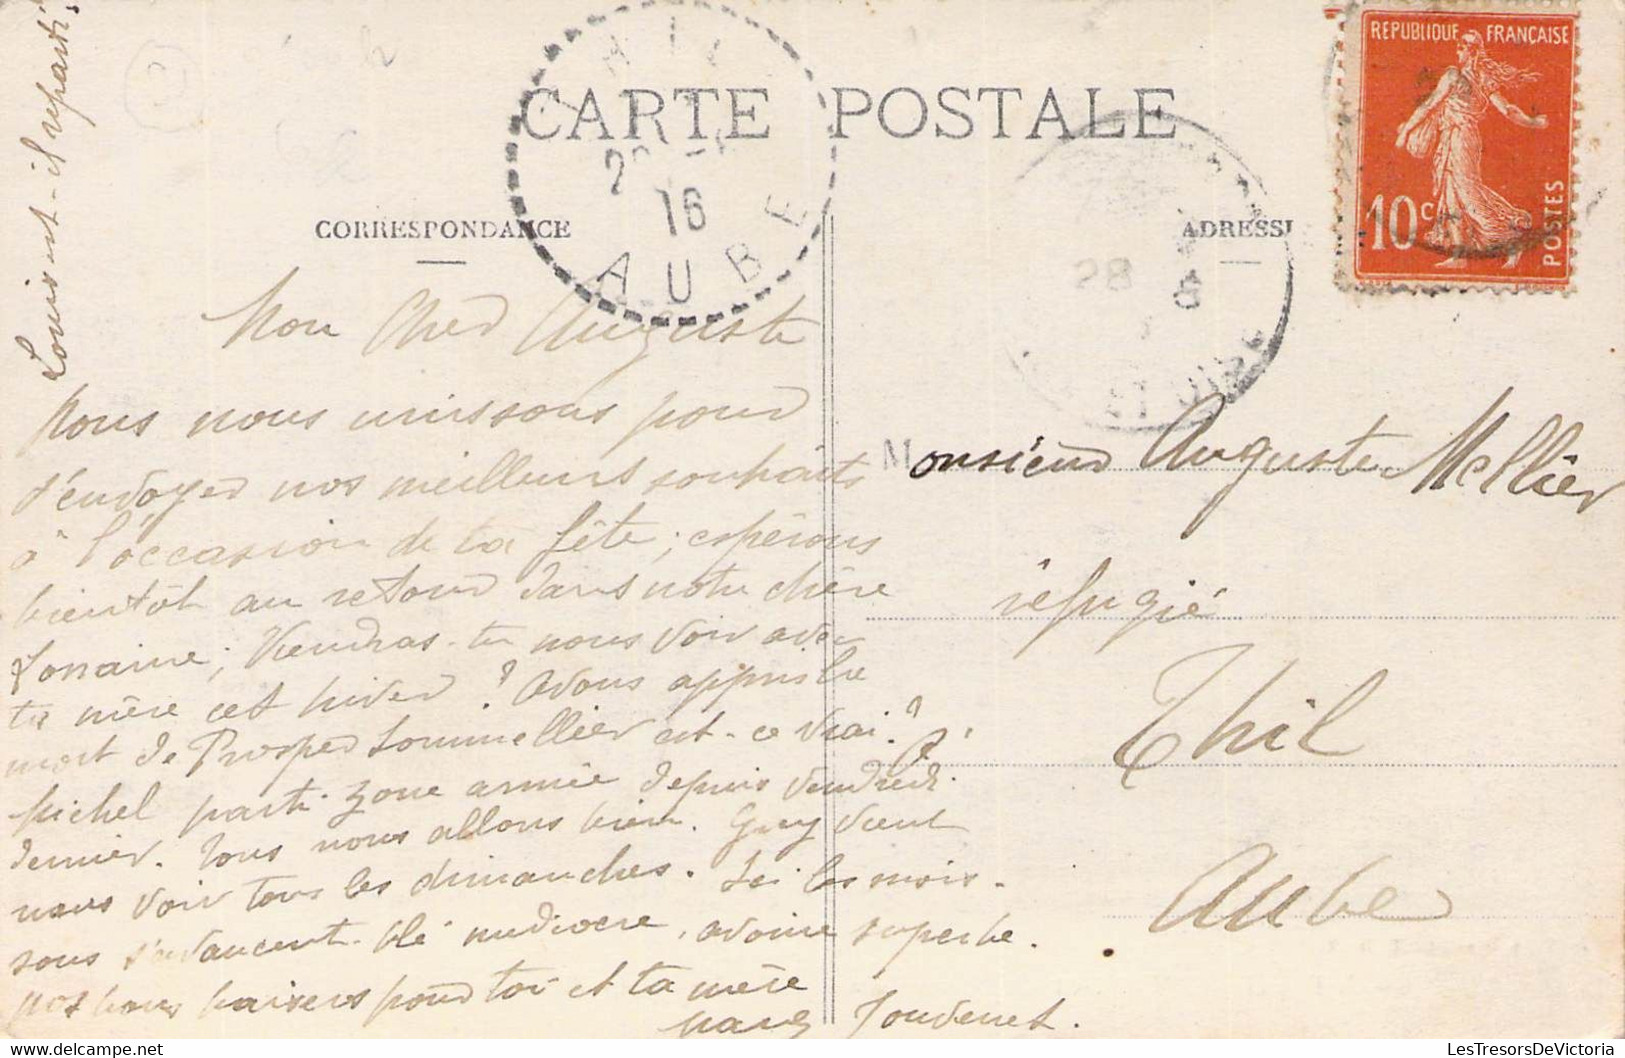 CARTE POSTALE
CORRESPONDANCE
Mon Cher Auguste
Nous nous unissons pour
t'envoyer nos meilleurs souhaits
à l'occasion de ta fête ; espérons
bientôt au retour dans notre chère
Lorraine ; Viendras-tu nous voir avec
ta mère cet hiver ? Avons appris la
mort de Prosper Sommellier est-ce vrai ?
Michel parti zone armée depuis Vendredi
dernier. Tous nous allons bien. Guy vient
nous voir tous les dimanches. Ici les mois-
sons s'avancent blé médiocre, avoine superbe.
Nos bons baisers pour toi et ta mère
Jouvenet.
il reparti
AUBE
16
28
RÉPUBLIQUE FRANÇAISE
10c
POSTES
Monsieur Auguste Mellier
réfugié
à
Thil
Aube
LesTresorsDeVictoria.com